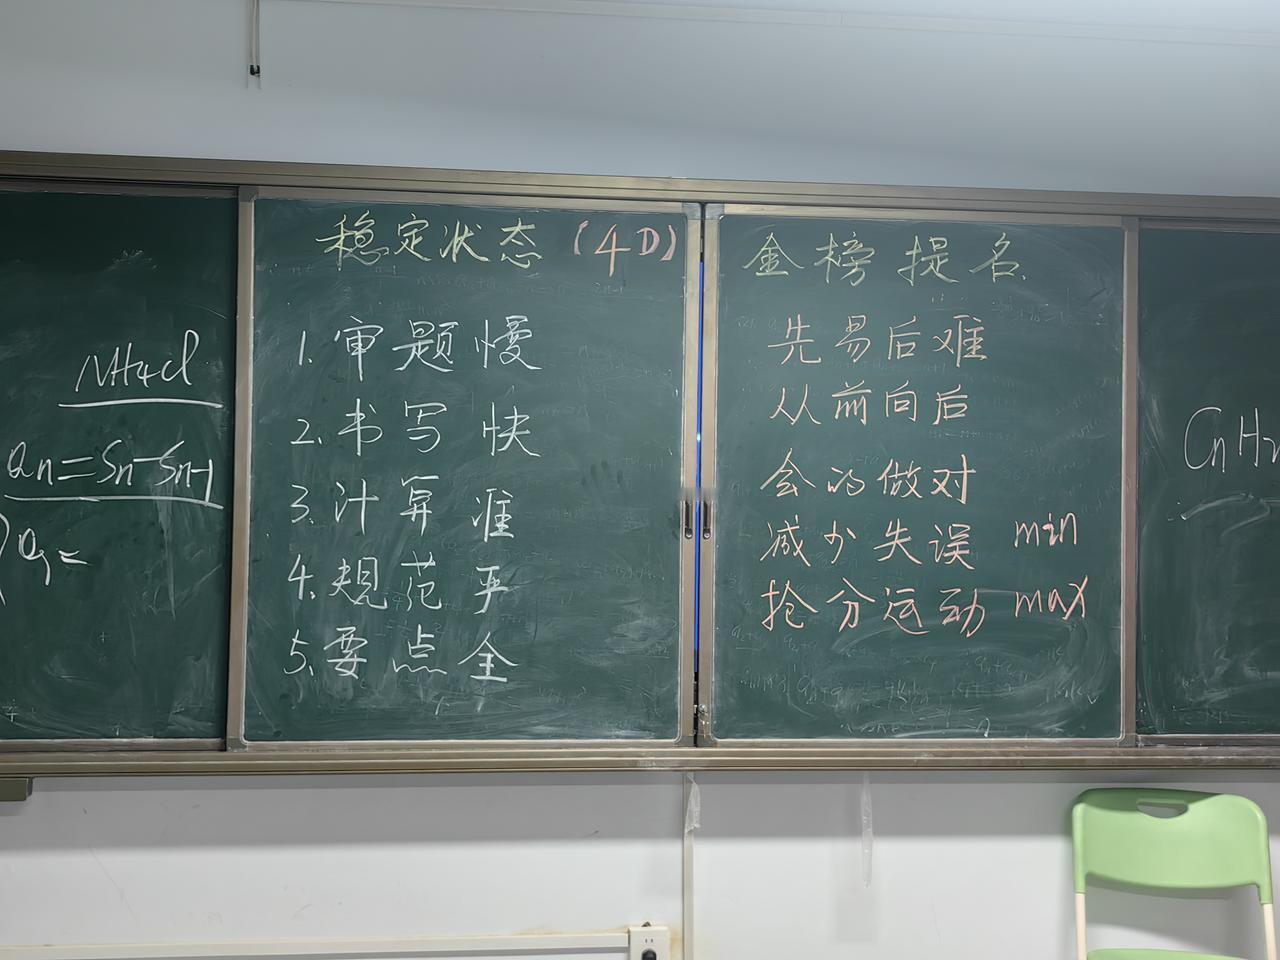 NH4Cl
an=Sn-Sn-1
稳定状态 (4D)
1. 审题慢
2. 书写快
3. 计算准
4. 规范严
5. 要点全
金榜提名
先易后难
从前向后
会的做对
减少失误 min
抢分运动 max